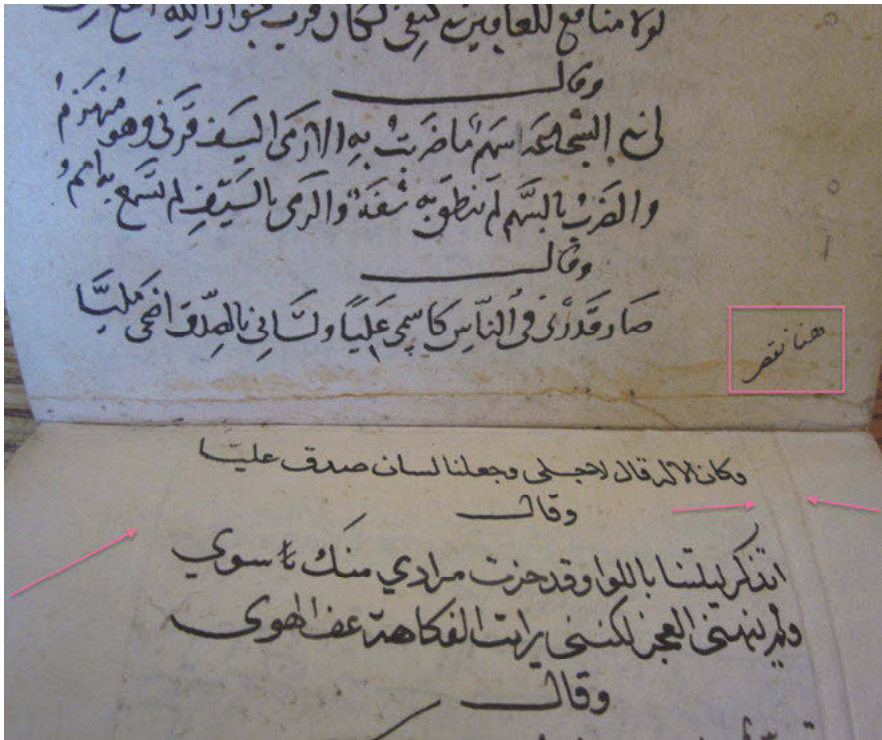 لولا منافع للعافين كيف لكان قرب جوار الله
وقال
لي في الشجاعة اسهم ما ضربت به الا رمى السيف قرني وهو منهزم
والضرب بالسهم لم ينطق به شفة والرمى بالسيف لم تسمع به امم
وقال
صار قدرى فى الناس كاسمى عليا ولسانى بالصدق اضحى مليا
هنا نقص
وكان الاله قال لاجلى وجعلنا لسان صدق عليا
وقال
اتذكر ليلتنا باللوا وقد حزت مرادي منك سوي
ولم ينهنى العجز لكننى رايت الفكاهة عف الهوى
وقال